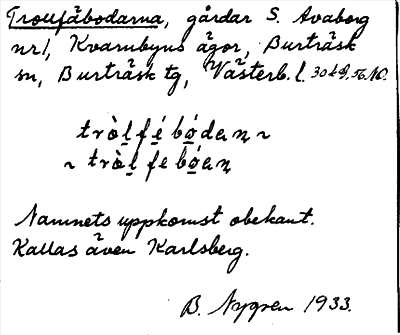 Trollfäbodarna, gårdar S. Avaborg
nr 1, Kvarnbyns ägor, Burträsk
sn, Burträsk tg, Västerb. l.
tròl̲fé̲bo̲dan ~
~ tròl̲febo̲an
Namnets uppkomst obekant.
Kallas även Karlsberg.
B. Nygren 1933.